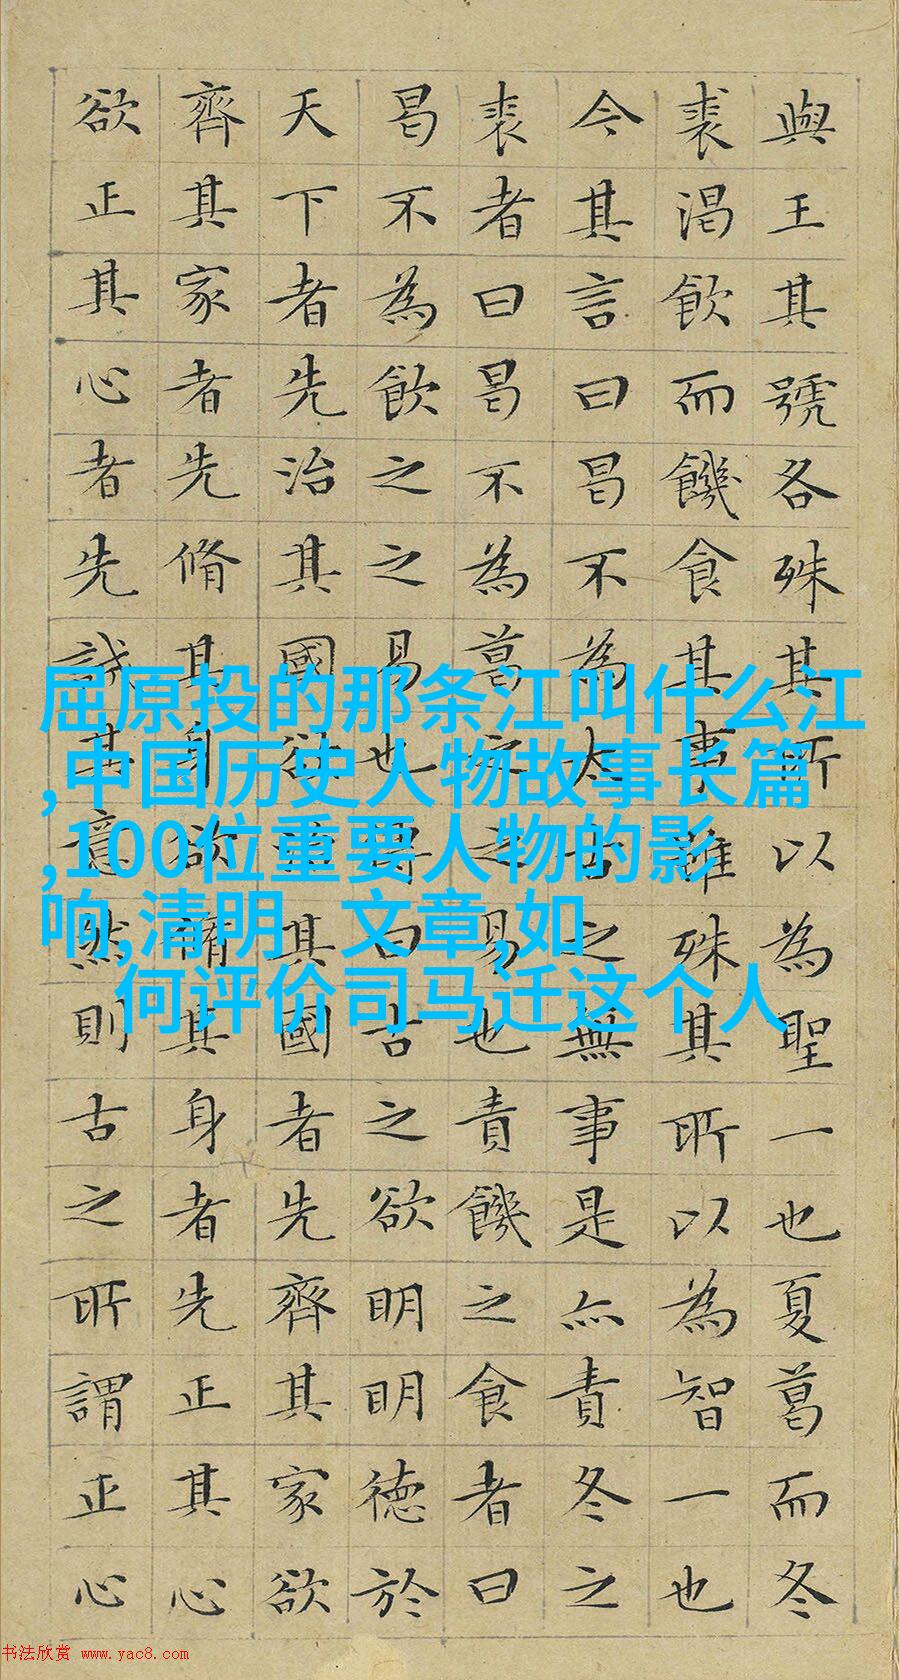 與王其號各殊其所以為聖一也夏葛而冬
裘渴飲而饑食其事雖殊其所以為智一也
今其言曰曷不為太古之無事是亦責冬之
裘者曰曷不為葛之之易也責饑之食者曰
曷不為飲之之易也傳曰古之欲明明德於
天下者先治其國欲治其國者先齊其家欲
齊其家者先脩其身欲脩其身者先正其心
欲正其心者先誠其意然則古之所謂正心
屈原投的那条江叫什么江
,中国历史人物故事长篇
,100位重要人物的影
响,清明  文章,如
何评价司马迁这个人
书法欣赏 www.yac8.com